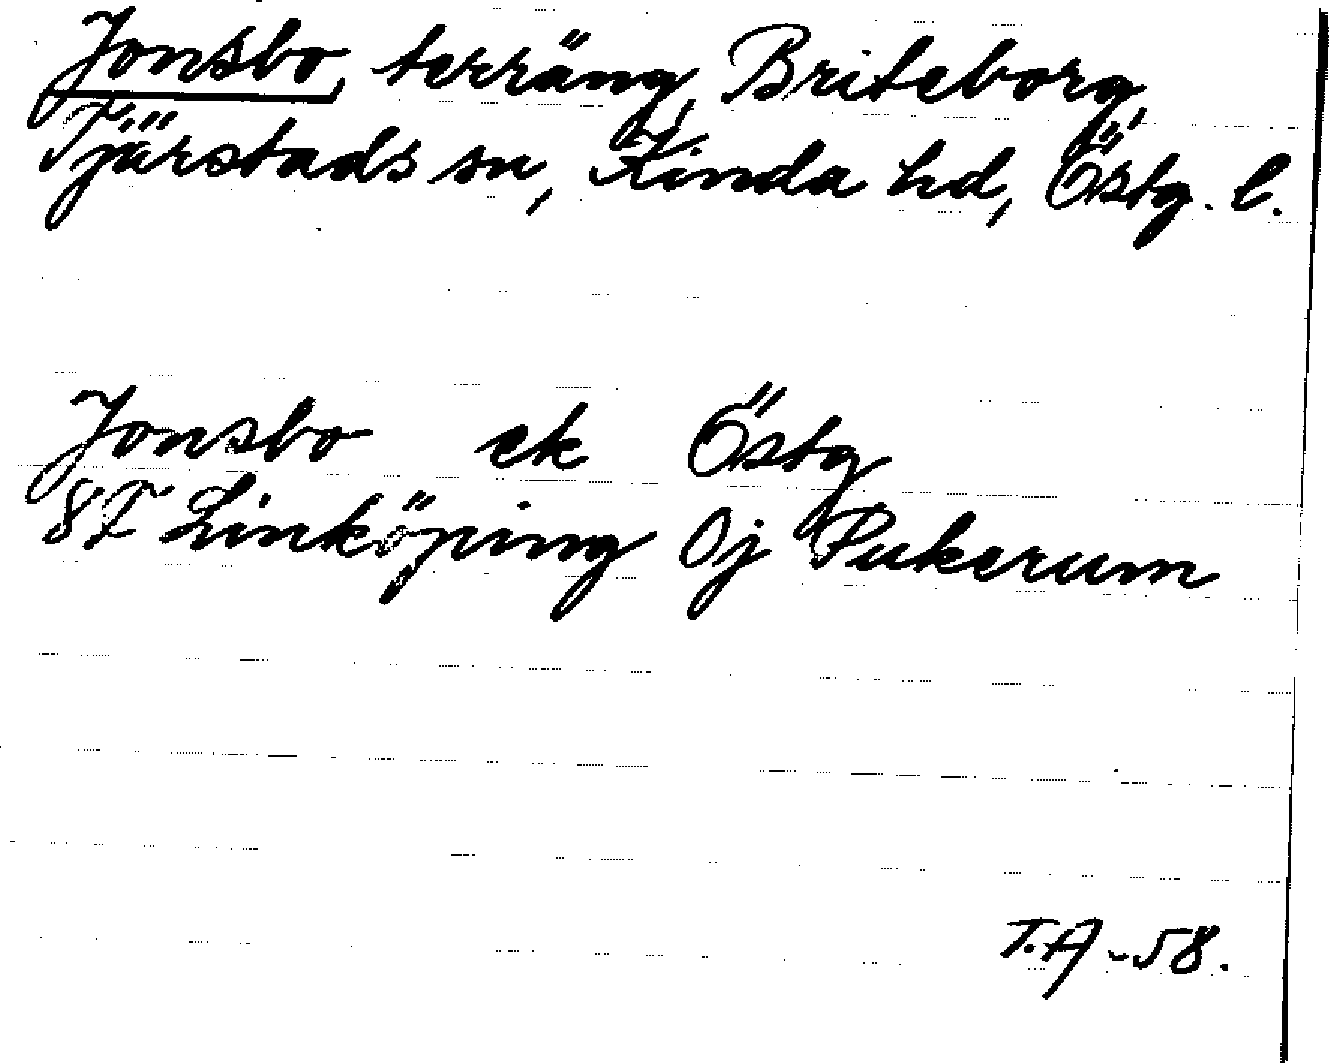 Jonsbo, terräng, Briteborg,
Tjärstads sn, Kinda hd, Östg. l.
Jonsbo ek Östg
8F Linköping 0j Pukerum
T.A -58.